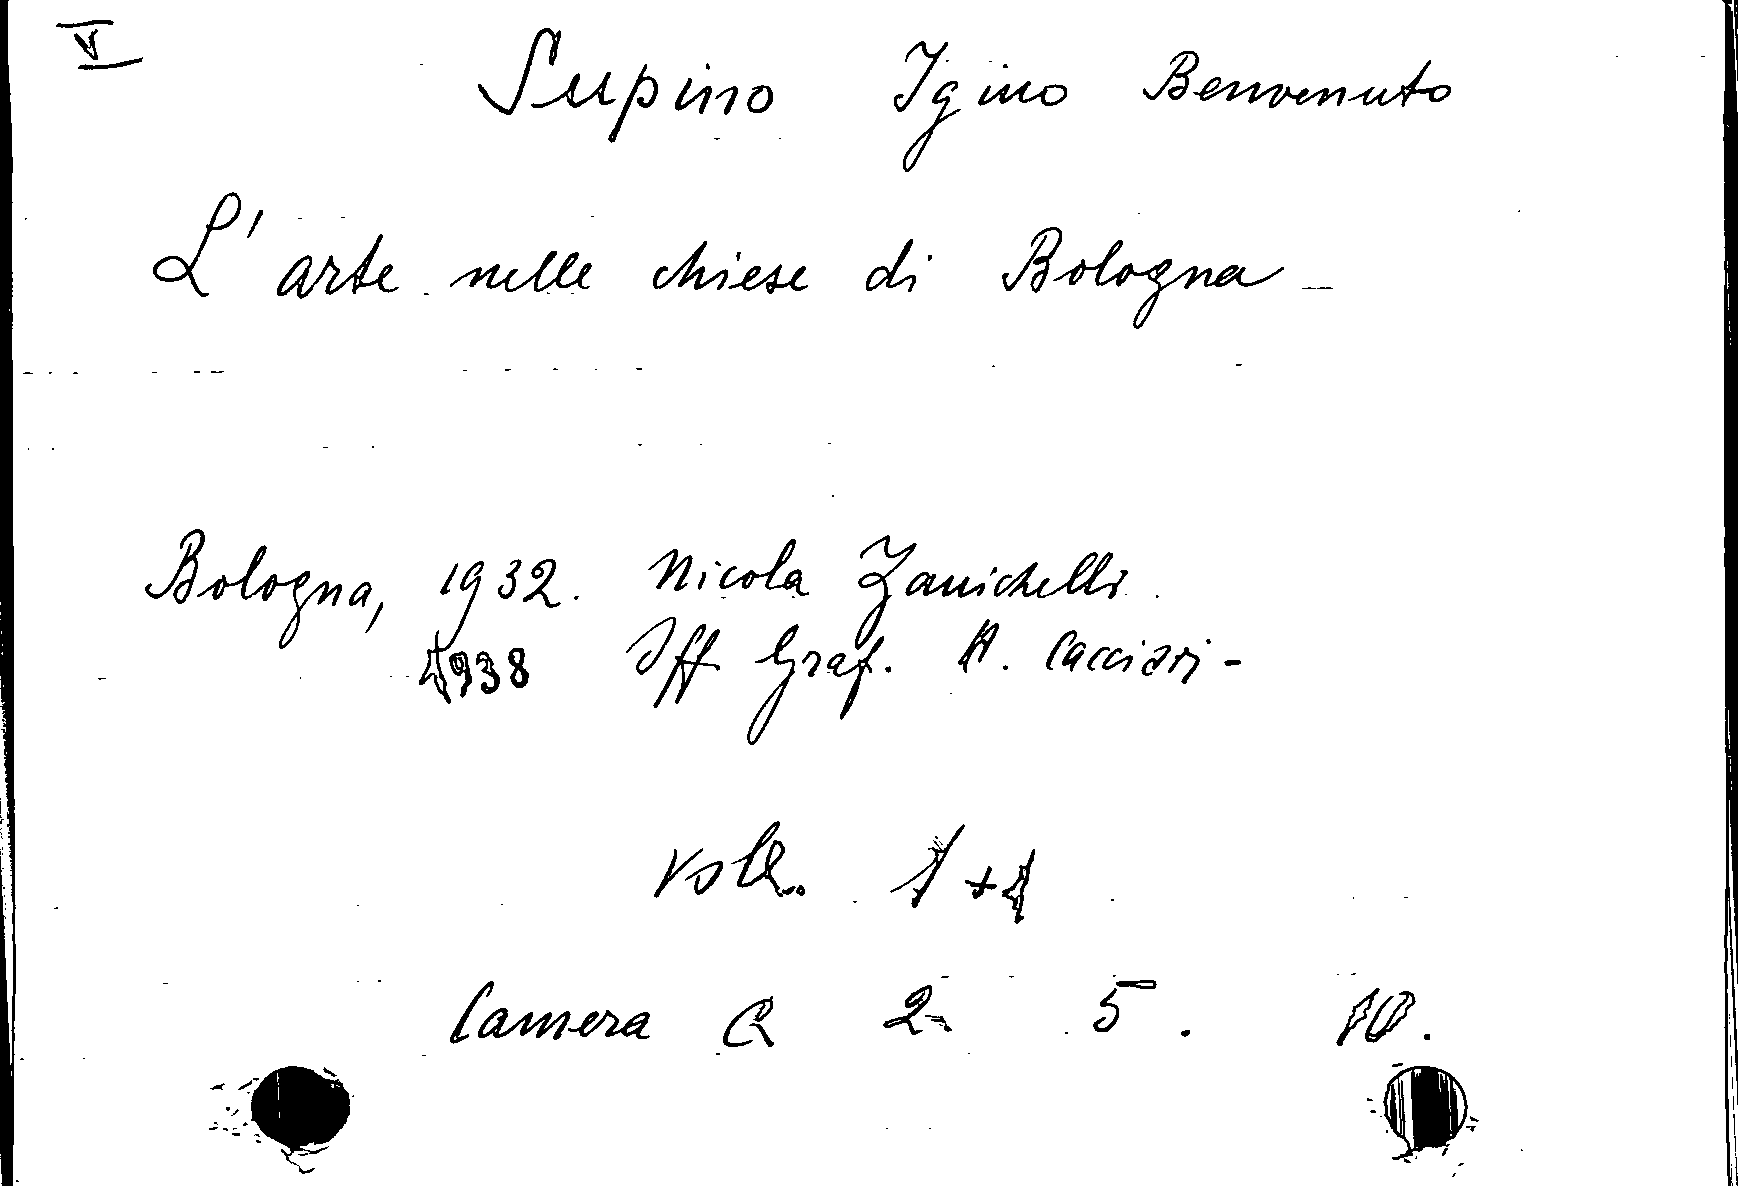 V
Supino Igino Benvenuto
L'arte nelle chiese di Bologna
Bologna, 1932. Nicola Zanichelli
1938 Off Graf. A. Cacciari -
voll. 1 + 1
Camera Q 2 5. 10.